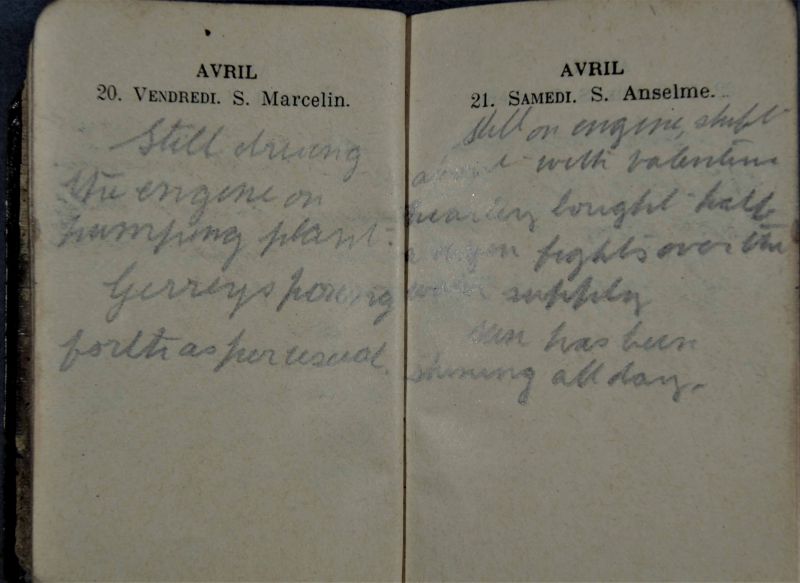 AVRIL
20. VENDREDI. S. Marcelin.
Still driving
the engine on
pumping plant.
Gerrys
forth as per usual.
AVRIL
21. SAMEDI. S. Anselme.
Still on engine, shift
with valentine
nearly bought half
a dozen fights over the
water supply
sun has been
shining all day.